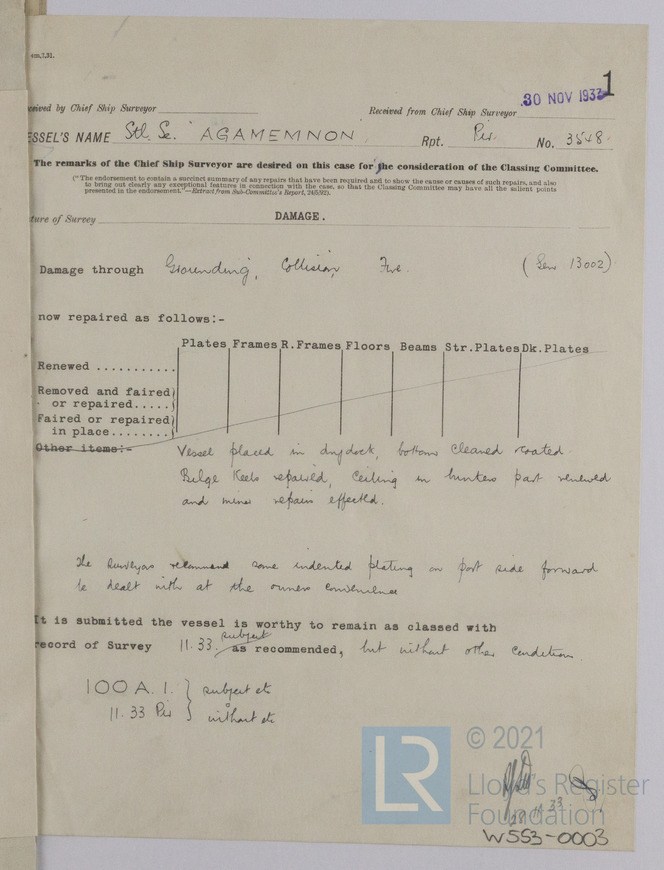 1
30 NOV 1933
eived by Chief Ship Surveyor
Received from Chief Ship Surveyor
ESSEL'S NAME Stl. Sc. "AGAMEMNON Rpt. Pir. No. 3548.
The remarks of the Chief Ship Surveyor are desired on this case for the consideration of the Classing Committee.
("The endorsement to contain a succinct summary of any repairs that have been required and to show the cause or causes of such repairs, and also
to bring out clearly any exceptional features in connection with the case, so that the Classing Committee may have all the salient points
presented in the endorsement."—Extract from Sub-Committee's Report, 24/5/92).
ture of Survey DAMAGE.
Damage through Grounding, Collision, Fire. (Sen 13002)
now repaired as follows:-
Plates Frames R.Frames Floors Beams Str.Plates Dk.Plates
Renewed ...........
Removed and faired)
or repaired.....(
Faired or repaired)
in place........(
Other items:- Vessel placed in drydock, bottom cleaned & coated.
Bilge keels repaired, ceiling in bunkers part renewed
and minor repairs effected.
The surveyors recommend some indented plating on port side forward
be dealt with at the owners convenience
It is submitted the vessel is worthy to remain as classed with
record of Survey 11.33. subject as recommended, but without other condition.
100A.1. } subject etc
11.33 Pir } without etc
LR
© 2021
Lloyd's Register
Foundation
W553-0003